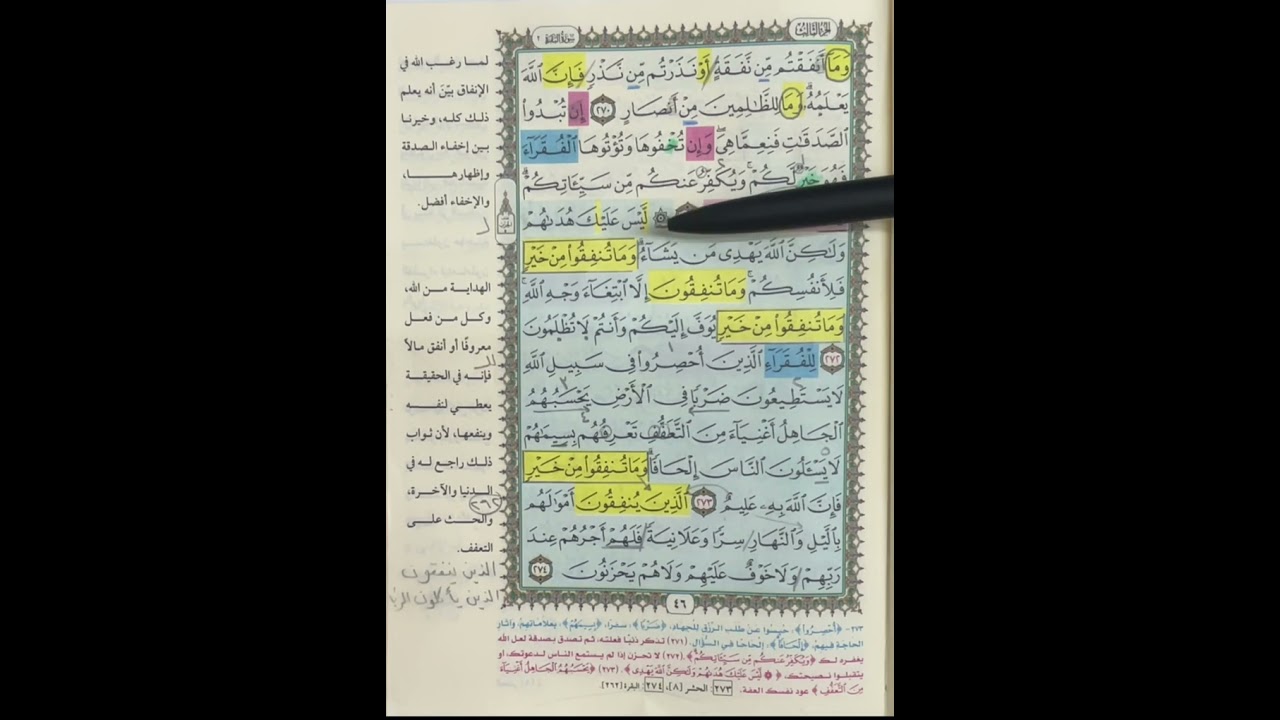 الجزء الثالث
سورة البقرة ٢
وَمَآ أَنفَقْتُم مِّن نَّفَقَةٍ أَوْ نَذَرْتُم مِّن نَّذْرٍ فَإِنَّ ٱللَّهَ
يَعْلَمُهُۥ وَمَا لِلظَّـٰلِمِينَ مِنْ أَنصَارٍ ٢٧٠ إِن تُبْدُوا۟
ٱلصَّدَقَـٰتِ فَنِعِمَّا هِىَ وَإِن تُخْفُوهَا وَتُؤْتُوهَا ٱلْفُقَرَآءَ
فَهُوَ خَيْرٌ لَّكُمْ وَيُكَفِّرُ عَنكُم مِّن سَيِّـَٔاتِكُمْ
۞ لَّيْسَ عَلَيْكَ هُدَىٰهُمْ
وَلَـٰكِنَّ ٱللَّهَ يَهْدِى مَن يَشَآءُ وَمَا تُنفِقُوا۟ مِنْ خَيْرٍ
فَلِأَنفُسِكُمْ وَمَا تُنفِقُونَ إِلَّا ٱبْتِغَآءَ وَجْهِ ٱللَّهِ
وَمَا تُنفِقُوا۟ مِنْ خَيْرٍ يُوَفَّ إِلَيْكُمْ وَأَنتُمْ لَا تُظْلَمُونَ
٢٧٢ لِلْفُقَرَآءِ ٱلَّذِينَ أُحْصِرُوا۟ فِى سَبِيلِ ٱللَّهِ
لَا يَسْتَطِيعُونَ ضَرْبًا فِى ٱلْأَرْضِ يَحْسَبُهُمُ
ٱلْجَاهِلُ أَغْنِيَآءَ مِنَ ٱلتَّعَفُّفِ تَعْرِفُهُم بِسِيمَـٰهُمْ
لَا يَسْـَٔلُونَ ٱلنَّاسَ إِلْحَافًا وَمَا تُنفِقُوا۟ مِنْ خَيْرٍ
فَإِنَّ ٱللَّهَ بِهِۦ عَلِيمٌ ٢٧٣ ٱلَّذِينَ يُنفِقُونَ أَمْوَٰلَهُم
بِٱلَّيْلِ وَٱلنَّهَارِ سِرًّا وَعَلَانِيَةً فَلَهُمْ أَجْرُهُمْ عِندَ
رَبِّهِمْ وَلَا خَوْفٌ عَلَيْهِمْ وَلَا هُمْ يَحْزَنُونَ ٢٧٤
٤٦
لما رغب الله في
الإنفاق بيّن أنه يعلم
ذلك كله، وخيرنا
بين إخفاء الصدقة
وإظهارها،
والإخفاء أفضل.
الهداية من الله،
وكل من فعل
معروفًا أو أنفق مالاً
فإنه في الحقيقة
يعطي لنفسه
وينفعها، لأن ثواب
ذلك راجع له في
الدنيا والآخرة،
والحث على
التعفف.
٢٦٢
الذين ينفقون
الذين يأكلون الربا
٢٧٣- ﴿أُحْصِرُوا﴾: حُبِسُوا عن طلب الرزق للجهاد، ﴿ضَرْبًا﴾: سفرًا، ﴿بِسِيمَاهُمْ﴾: بعلاماتهم، وآثار
الحاجة فيهم، ﴿إِلْحَافًا﴾: إلحاحًا في السُّؤال. (٢٧١) تذكر ذنبًا فعلته، ثم تصدق بصدقة لعل الله
يغفره لك ﴿وَيُكَفِّرُ عَنكُم مِّن سَيِّئَاتِكُمْ﴾. (٢٧٢) لا تحزن إذا لم يستمع الناس لدعوتك، أو
يتقبلوا نصيحتك، ﴿۞ لَّيْسَ عَلَيْكَ هُدَاهُمْ وَلَٰكِنَّ اللَّهَ يَهْدِي﴾. (٢٧٣) ﴿يَحْسَبُهُمُ الْجَاهِلُ أَغْنِيَاءَ
مِنَ التَّعَفُّفِ﴾ عود نفسك العفة. ٢٧٣: الحشر [٨]، ٢٧٤: البقرة [٢٦٢].